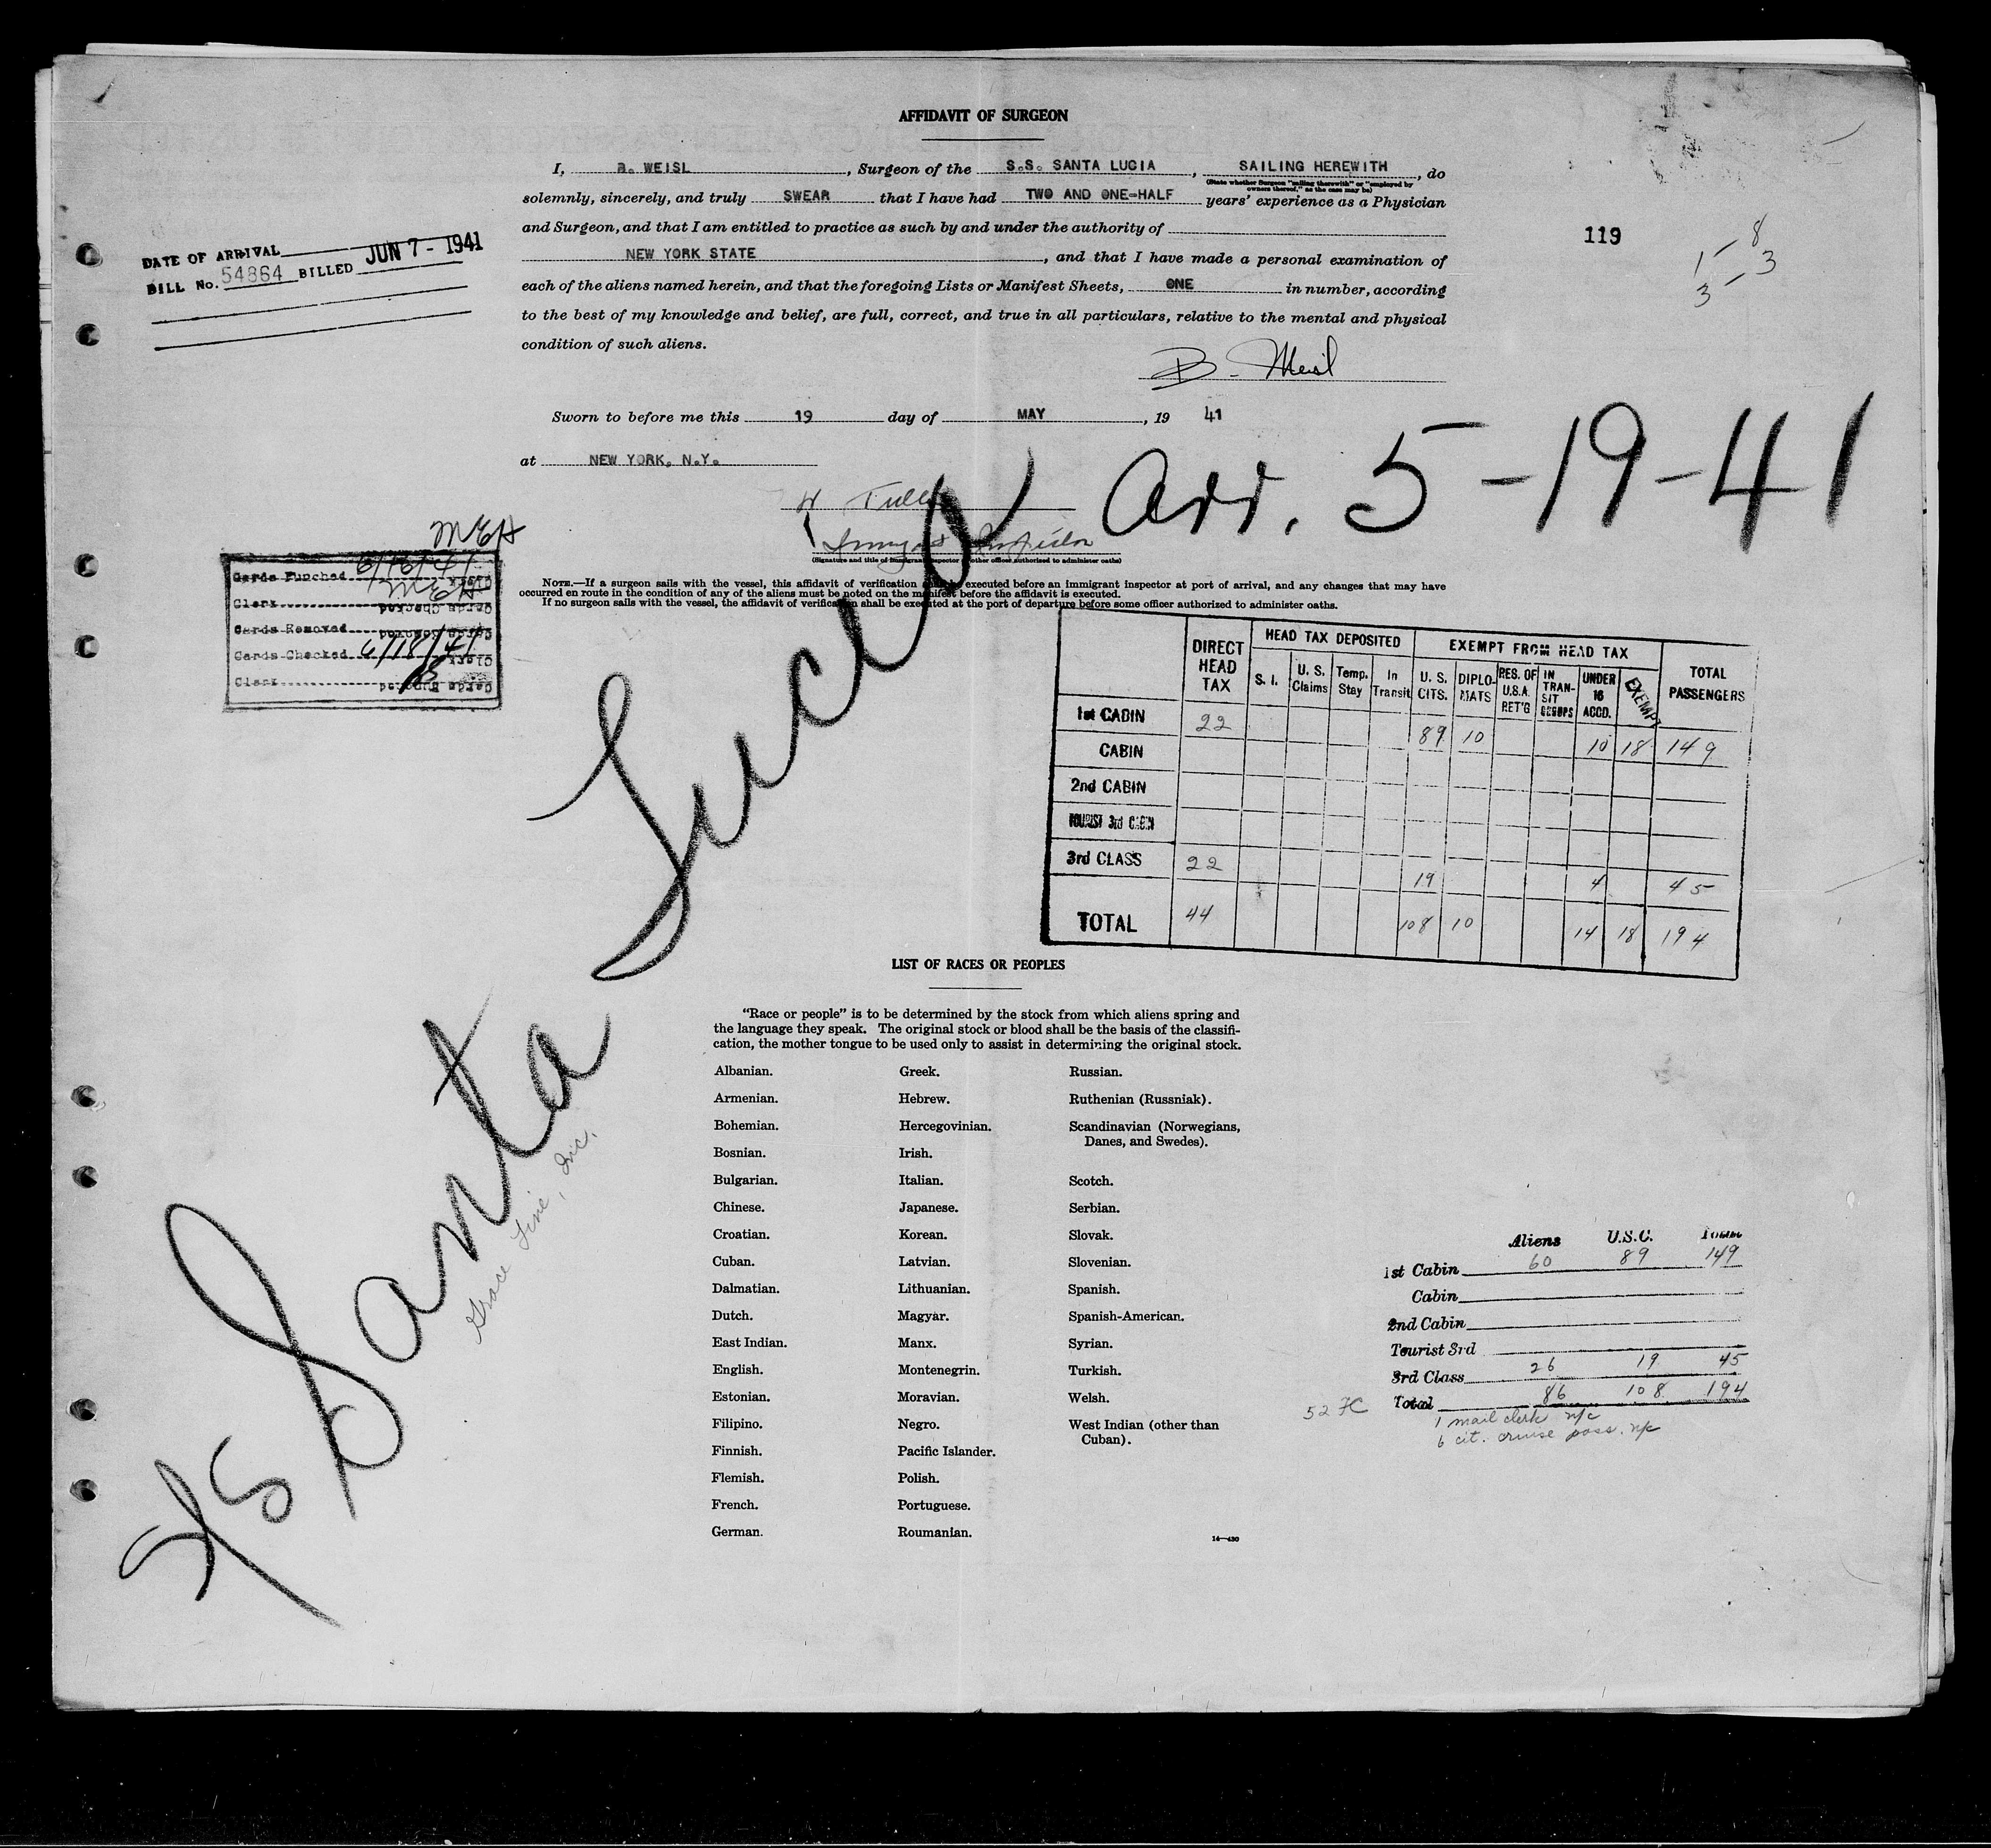 AFFIDAVIT OF SURGEON
I, B. WEISL, Surgeon of the S.S. SANTA LUCIA, SAILING HEREWITH, do
(State whether Surgeon "sailing therewith" or "employed by owners thereof," as the case may be)
solemnly, sincerely, and truly SWEAR that I have had TWO AND ONE-HALF years' experience as a Physician
and Surgeon, and that I am entitled to practice as such by and under the authority of
NEW YORK STATE, and that I have made a personal examination of
each of the aliens named herein, and that the foregoing Lists or Manifest Sheets, ONE in number, according
to the best of my knowledge and belief, are full, correct, and true in all particulars, relative to the mental and physical
condition of such aliens.
B. Weisl
Sworn to before me this 19 day of MAY, 19 41
at NEW YORK, N.Y.
Arr. 5-19-41
(Signature and title of immigrant inspector or other officer authorized to administer oaths)
NOTE.—If a surgeon sails with the vessel, this affidavit of verification shall be executed before an immigrant inspector at port of arrival, and any changes that may have
occurred en route in the condition of any of the aliens must be noted on the manifest before the affidavit is executed.
If no surgeon sails with the vessel, the affidavit of verification shall be executed at the port of departure before some officer authorized to administer oaths.
119
8
1 - 3
3
DATE OF ARRIVAL
BILL No. 54864 BILLED JUN 7 - 1941
MEH
Cards Punched 6/16/41
Clerk MEH
Cards Removed
Cards Checked 6/18/41
Clerk
SS Santa Lucia
Grace Line, Inc.
DIRECT HEAD TAX
HEAD TAX DEPOSITED
EXEMPT FROM HEAD TAX
TOTAL PASSENGERS
S. I. U. S. Claims Temp. Stay In Transit U. S. CITS. DIPLO- MATS RES. OF U.S.A. RET'G IN TRAN- SIT GROUPS UNDER 16 ACCD. EXEMPT
1st CABIN 22 89 10 10 18 149
CABIN
2nd CABIN
TOURIST 3rd CABIN
3rd CLASS 22 19 4 45
TOTAL 44 108 10 14 18 194
LIST OF RACES OR PEOPLES
"Race or people" is to be determined by the stock from which aliens spring and
the language they speak. The original stock or blood shall be the basis of the classifi-
cation, the mother tongue to be used only to assist in determining the original stock.
Albanian.
Armenian.
Bohemian.
Bosnian.
Bulgarian.
Chinese.
Croatian.
Cuban.
Dalmatian.
Dutch.
East Indian.
English.
Estonian.
Filipino.
Finnish.
Flemish.
French.
German.
Greek.
Hebrew.
Hercegovinian.
Irish.
Italian.
Japanese.
Korean.
Latvian.
Lithuanian.
Magyar.
Manx.
Montenegrin.
Moravian.
Negro.
Pacific Islander.
Polish.
Portuguese.
Roumanian.
Russian.
Ruthenian (Russniak).
Scandinavian (Norwegians,
Danes, and Swedes).
Scotch.
Serbian.
Slovak.
Slovenian.
Spanish.
Spanish-American.
Syrian.
Turkish.
Welsh.
West Indian (other than
Cuban).
14—430
Aliens U.S.C. Total
1st Cabin 60 89 149
Cabin
2nd Cabin
Tourist 3rd
3rd Class 26 19 45
Total 86 108 194
52 FC
1 mail clerk n/c
6 cit. cruise pass. n/c